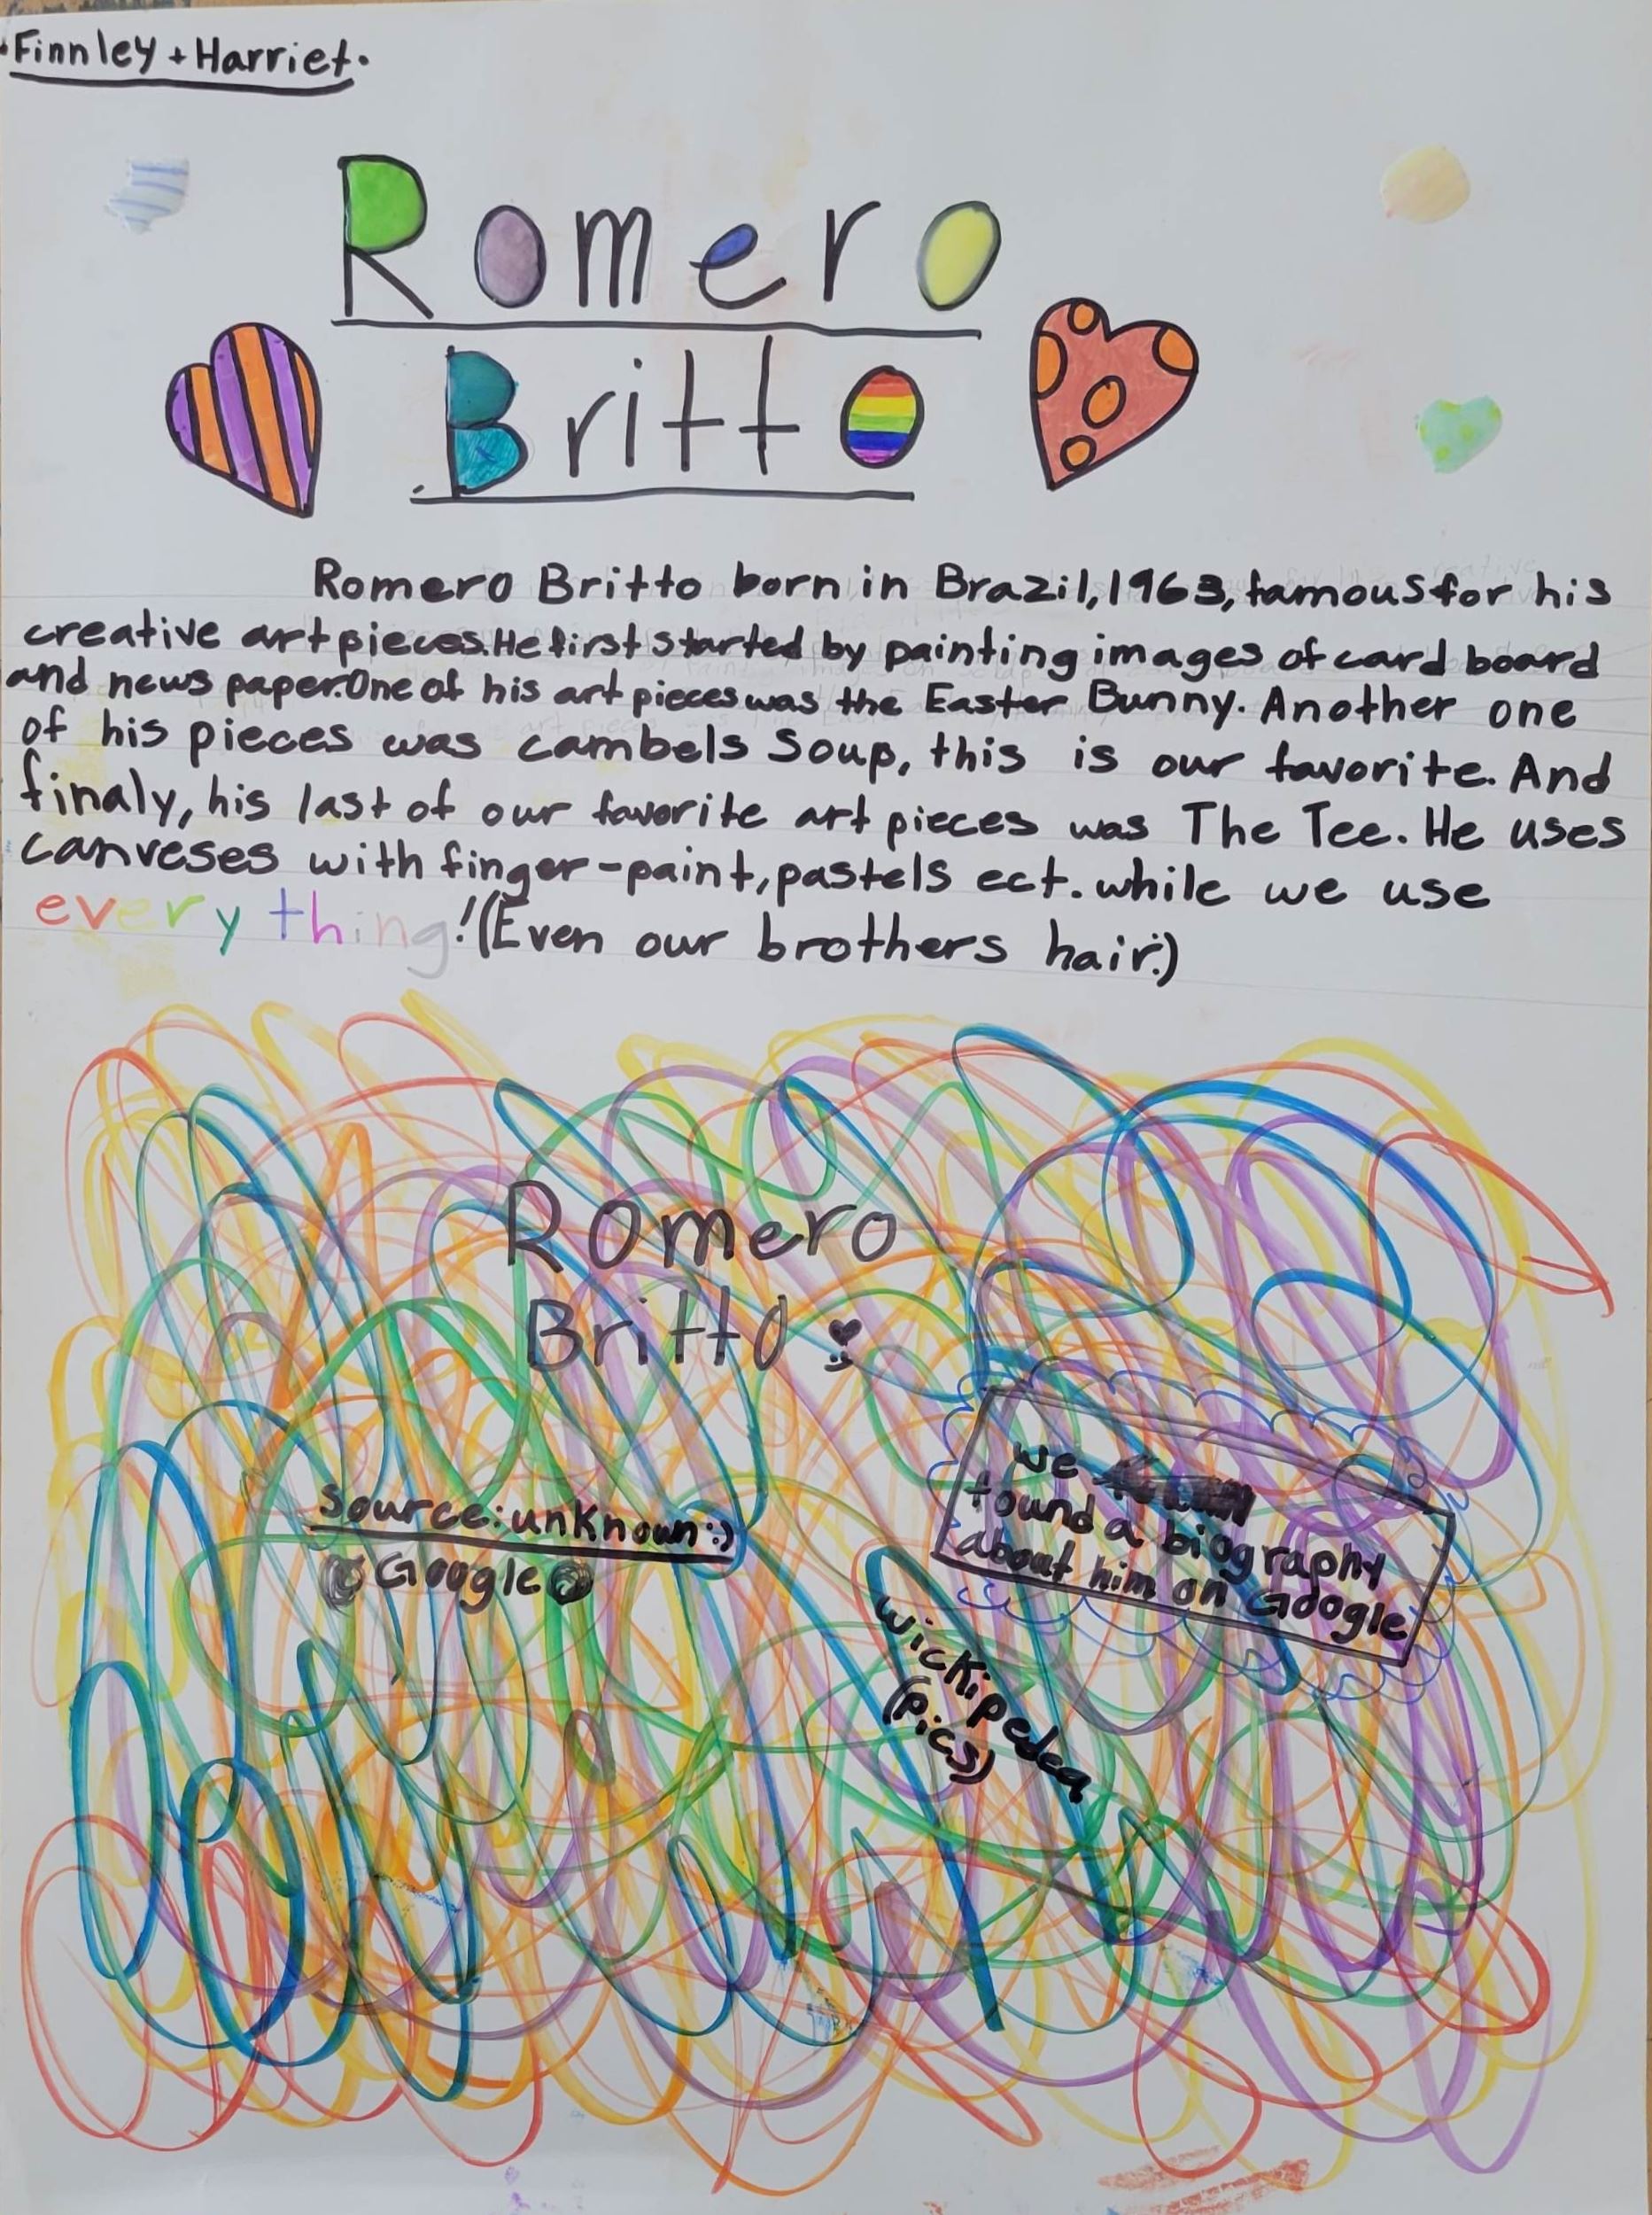 ·Finnley + Harriet·
Romero
Britto
Romero Britto born in Brazil, 1963, famous for his
creative art pieces. He first started by painting images of card board
and news paper. One of his art pieces was the Easter Bunny. Another one
of his pieces was cambels Soup, this is our favorite. And
finaly, his last of our favorite art pieces was The Tee. He uses
canveses with finger-paint, pastels ect. while we use
every thing! (Even our brothers hair:)
Romero
Britto
source: unknown :)
Google
we
found a biography
about him on Google
wickipedea
(pics)